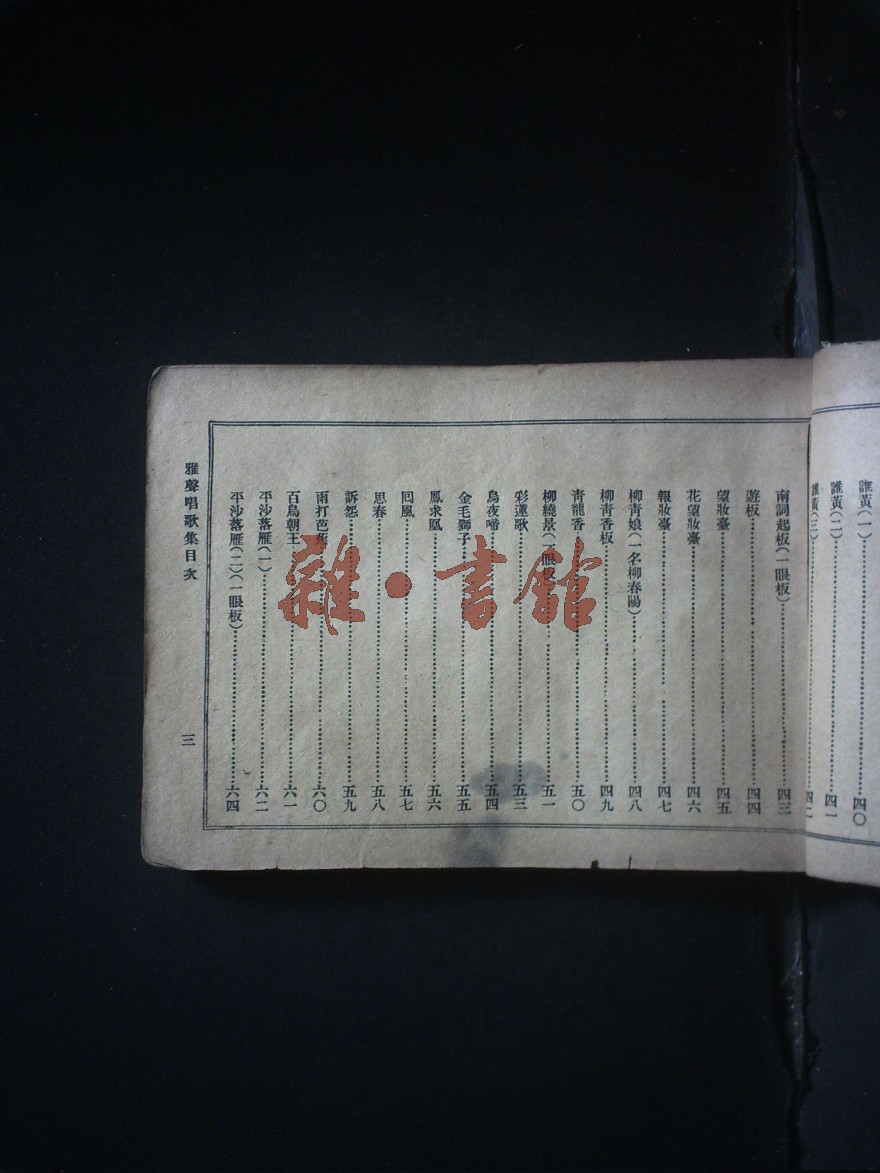 讙黃(一)⋯⋯四〇
讙黃(二)⋯⋯四一
讙黃(三)⋯⋯四二
南詞起板(一眼板)⋯⋯四三
遊板⋯⋯四四
望妝臺⋯⋯四五
花望妝臺⋯⋯四六
報妝臺⋯⋯四七
柳青娘(一名柳春陽)⋯⋯四八
柳青香板⋯⋯四九
青龍香⋯⋯五〇
柳繞景(一眼板)⋯⋯五一
彩蓮歌⋯⋯五三
烏夜啼⋯⋯五四
金毛獅子⋯⋯五五
鳳求凰⋯⋯五六
囘風⋯⋯五七
思春⋯⋯五八
訴怨⋯⋯五九
雨打芭蕉⋯⋯六〇
百鳥朝王⋯⋯六一
平沙落雁(一)⋯⋯六二
平沙落雁(二)(一眼板)⋯⋯六四
雅聲唱歌集目次 三
雜·書館